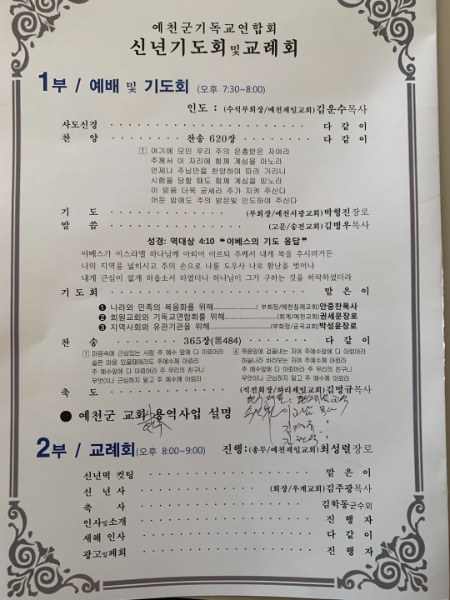 예천군기독교연합회
신년기도회및교례회
1부 / 예배 및 기도회 (오후 7:30~8:00)
인도 : (수석부회장/예천제일교회)김운수목사
사도신경 다 같 이
찬 양 찬송 620장 다 같 이
1 여기에 모인 우리 주의 은총받은 자여라
주께서 이 자리에 함께 계심을 아노라
언제나 주님만을 찬양하며 따라 가리니
시험을 당할 때도 함께 계심을 믿노라
이 믿음 더욱 굳세라 주가 지켜 주신다
어둔 밤에도 주의 밝은빛 인도하여 주신다
기 도 (부회장/예천서광교회)박형진장로
말 씀 (고문/송전교회)김병우목사
성경: 역대상 4:10 "야베스의 기도 응답"
야베스가 이스라엘 하나님께 아뢰어 이르되 주께서 내게 복을 주시려거든
나의 지역을 넓히시고 주의 손으로 나를 도우사 나로 환난을 벗어나
내게 근심이 없게 하옵소서 하였더니 하나님이 그가 구하는 것을 허락하셨더라
기 도 회 맡 은 이
❶ 나라와 민족의 복음화를 위해 (부회장/예천침례교회)안중찬목사
❷ 회원교회와 기독교연합회를 위해 (회계/예천교회)권세문장로
❸ 지역사회와 유관기관을 위해 (부회장/금곡교회)박성윤장로
찬 송 365장(통484) 다 같 이
1 마음속에 근심있는 사람 주 예수 앞에 다 아뢰어라
슬픈 마음 있을때에라도 주예수께 아뢰라
주 예수앞에 다 아뢰어라 주 우리의 친구니
무엇이나 근심하지 말고 주 예수께 아뢰라
4 죽음앞에 겁을내는 자여 주예수앞에 다 아뢰어라
하늘나라 바라보는 자여 주예수께 아뢰라
주 예수앞에 다 아뢰어라 주 우리의 친구니
무엇이나 근심하지 말고 주 예수께 아뢰라
축 도 (직전회장/하리제일교회)김명규목사
● 예천군 교회 용역사업 설명
2부 / 교례회(오후 8:00~9:00) 진행:(총무/예천제일교회)최성렬장로
신년떡 컷팅 맡 은 이
신 년 사 (회장/우계교회)김주광목사
축 사 김학동군수외
인사및소개 진 행 자
새해 인사 다 같 이
광고및폐회 진 행 자